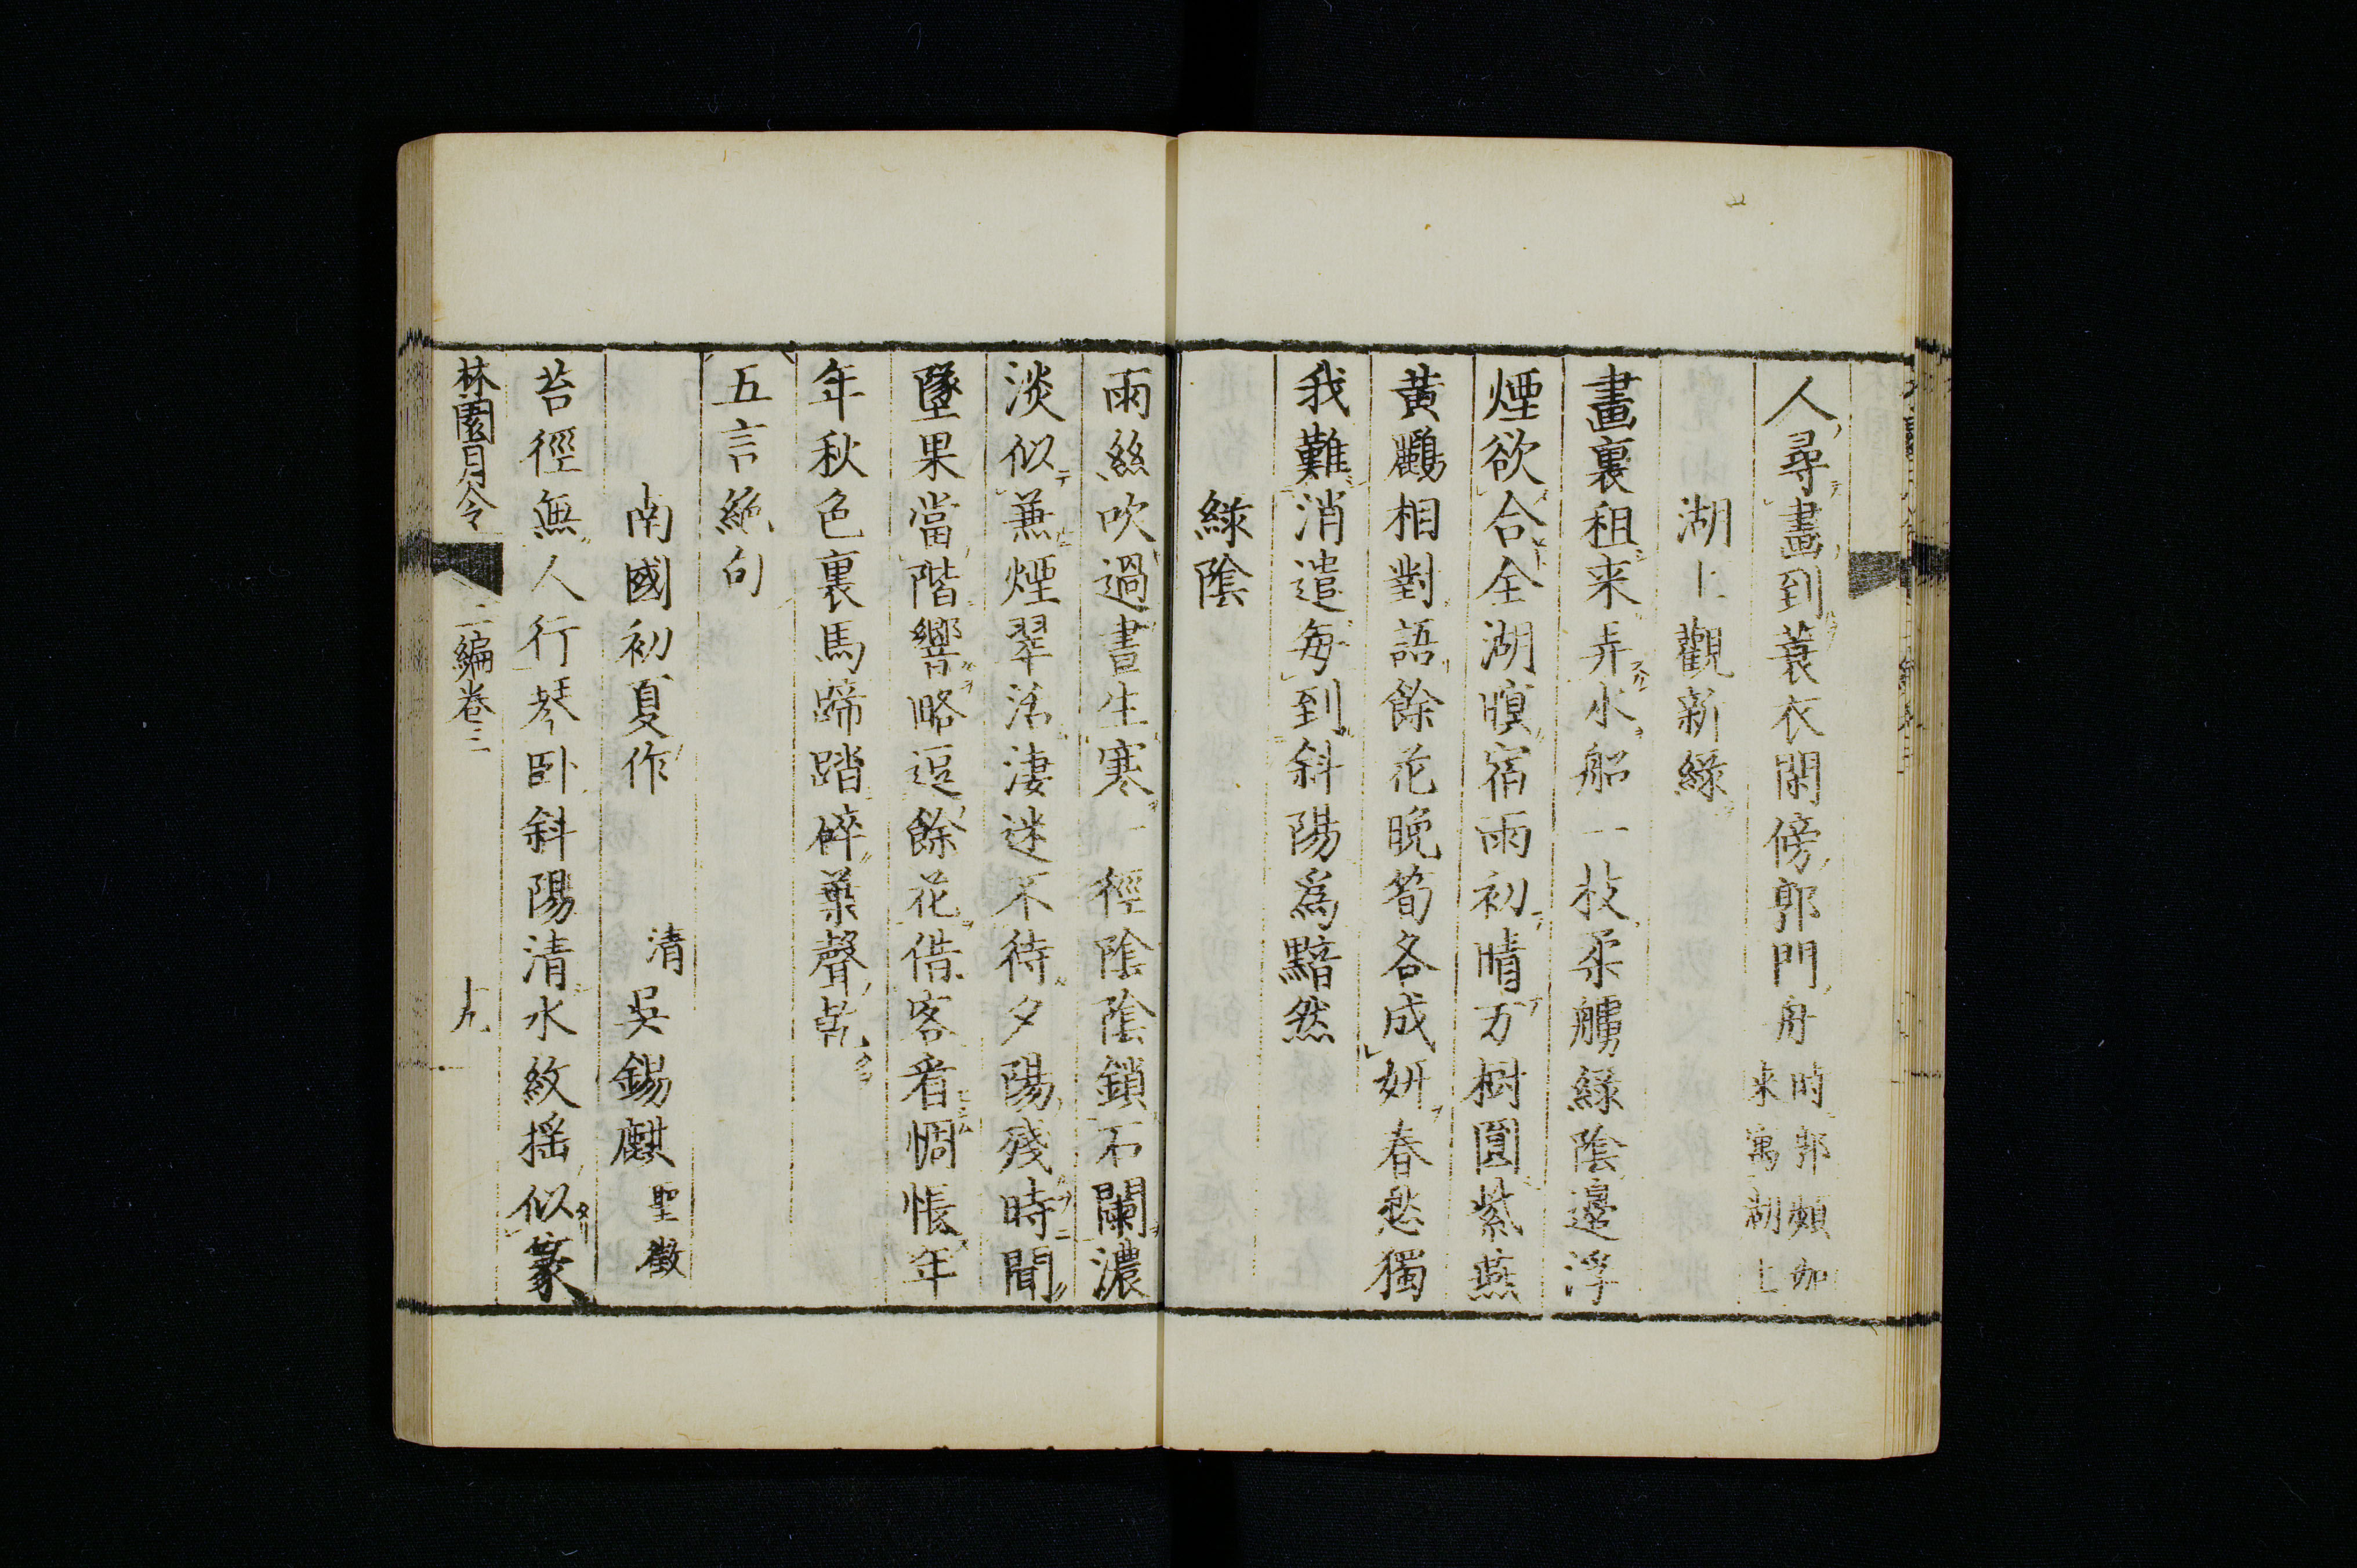 人尋畫到蓑衣閑傍郭門舟時郭頻伽
来寓湖上
湖上觀新綠
畫裏租来弄水船一枝柔艣綠陰邊浮
煙欲合全湖暝宿雨初晴万樹圓紫燕
黃鸝相對語餘花晚筍各成妍春愁獨
我難消遣每到斜陽爲黯然
綠陰
雨絲吹過晝生寒一徑陰陰鎖石闌濃
淡似兼煙翠活淒迷不待夕陽殘時聞
墜果當階響略逗餘花借客看惆悵年
年秋色裏馬蹄踏碎葉聲乾
五言絶句
南國初夏作 清 吳錫麒 聖徴
苔徑無人行琴卧斜陽清水紋揺似篆
林園月令 二編卷三 十九